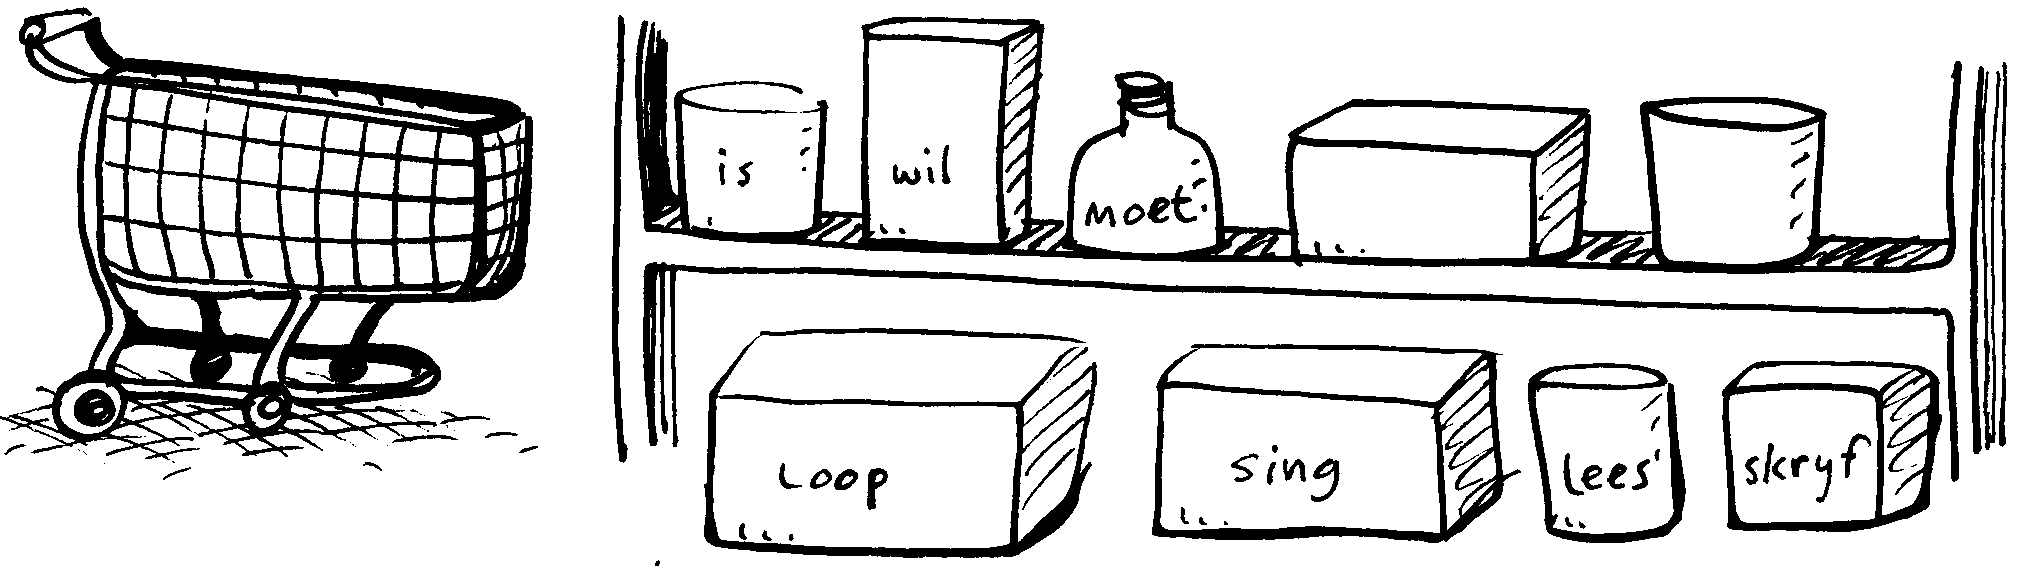 is wil moet
Loop sing lees skryf